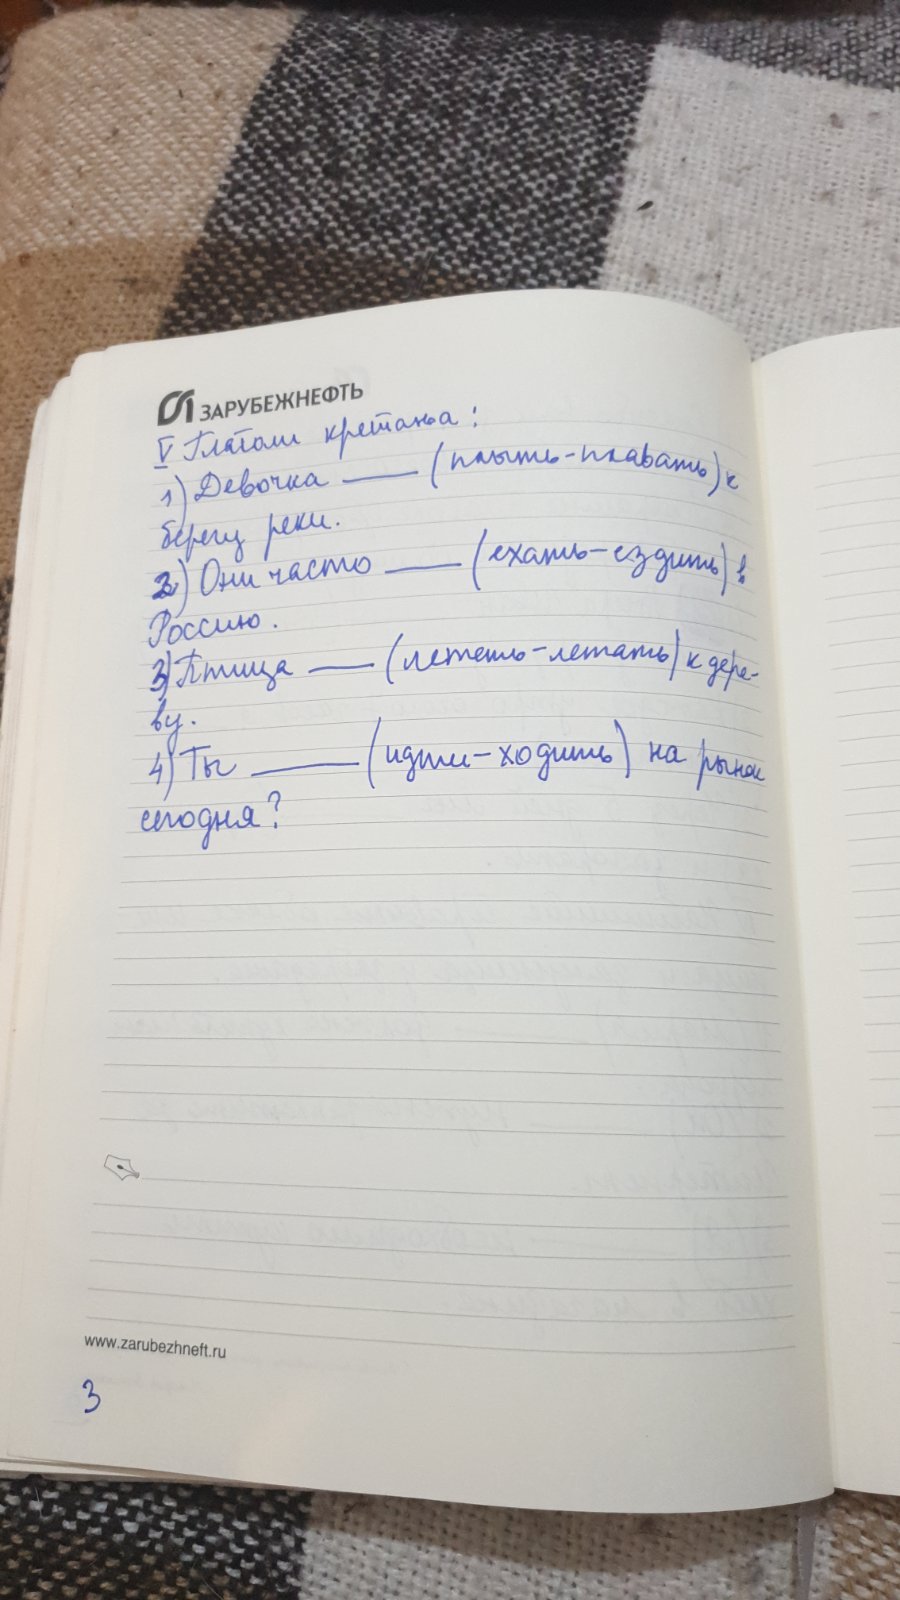 ЗАРУБЕЖНЕФТЬ
V Глаголи кретања:
1) Девочка ___ (плыть-плавать) к
берегу реки.
2) Они часто ___ (ехать-ездить) в
Россию.
3) Птица ___ (лететь-летать) к дере-
ву.
4) Ты ___ (идти-ходить) на рынок
сегодня?
www.zarubezhneft.ru
3